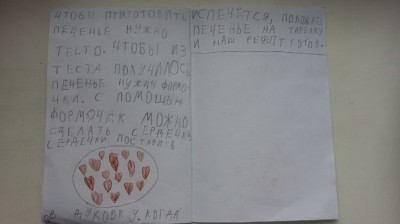 ЧТОБЫ ПРИГОТОВИТЬ
ПЕЧЕНЬЕ НУЖНО
ТЕСТО. ЧТОБЫ ИЗ
ТЕСТА ПОЛУЧИЛОСЬ
ПЕЧЕНЬЕ НУЖНИ ФОРМО
ЧКИ. С ПОМОЩЬЮ
ФОРМОЧЕК МОЖНО
СДЕЛАТЬ СЕРДЕЧКИ
СЕРДЕЧКИ ПОСТАВИТЬ
В ДУХОВКУ. КОГДА
ИСПЕЧЕТСЯ, ПОЛОЖИ
ПЕЧЕНЬЕ НА ТАРЕЛКУ
И НАШ РЕЦЕПТ ГОТОВ.